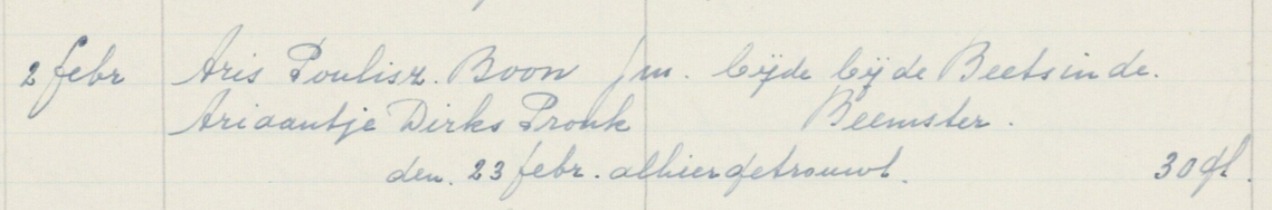 2 febr Aris Poulisz. Boon jm. beÿde bÿ de Beets in de.
Ariaantje Dirks Pronk Beemster.
den. 23 febr. alhier getrouwt. 30 gl.